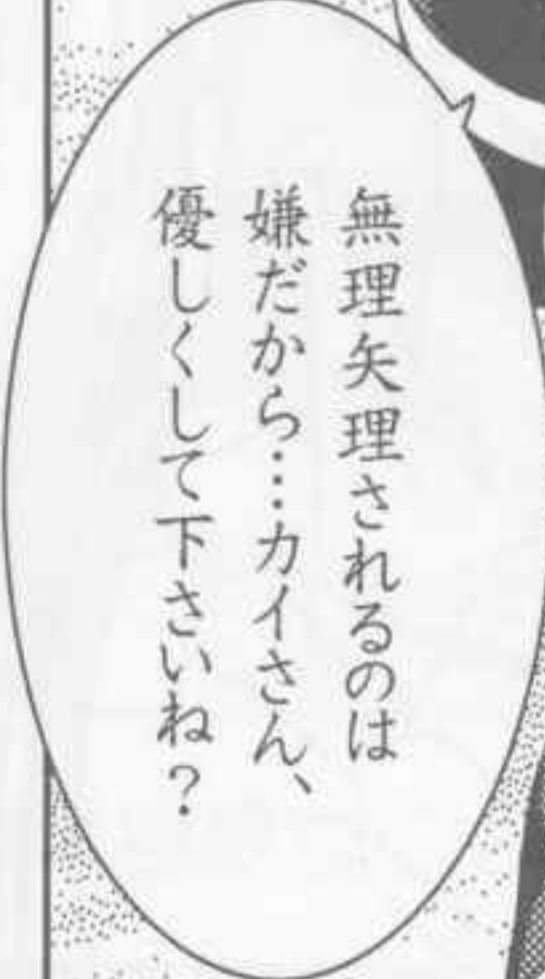 無理矢理されるのは
嫌だから…カイさん、
優しくして下さいね？